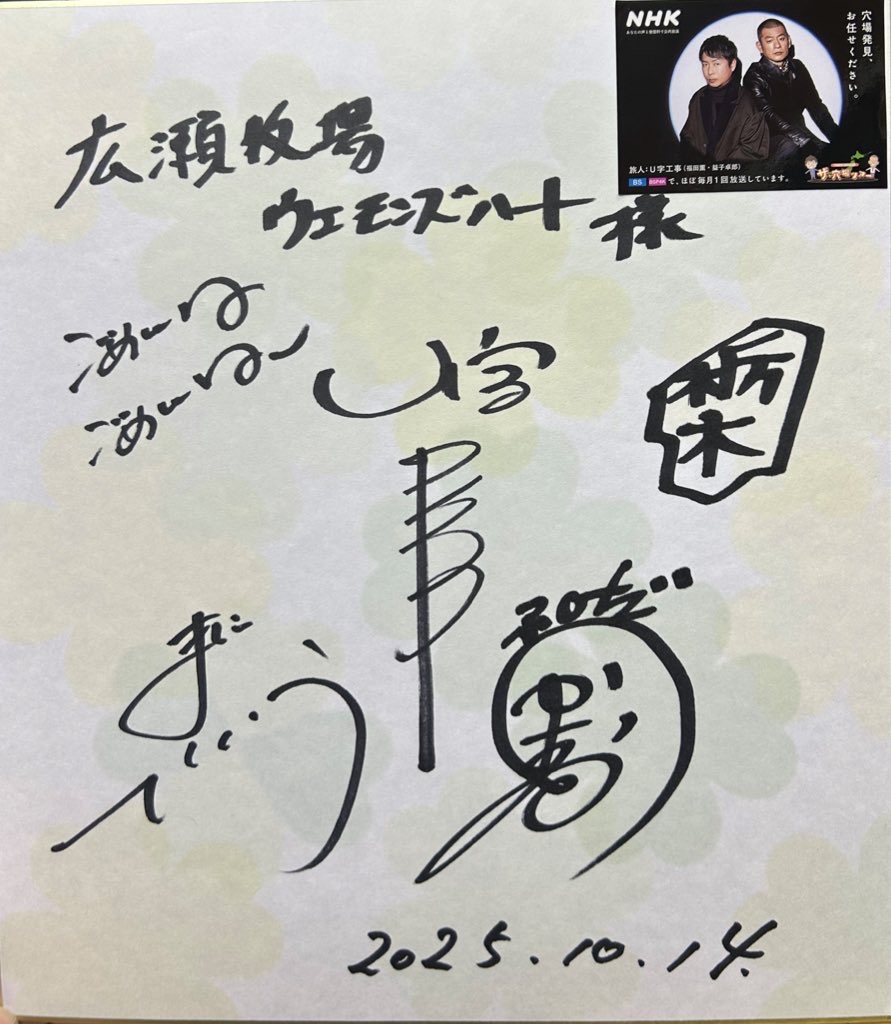 NHK
穴場発見、
お任せください。
旅人：U字工事（福田薫・益子卓郎）
BS BSP4K で、ほぼ毎月1回放送しています。
ザ・穴場ツアー
広瀬牧場
ウエモンズハート 様
ごめんねー
ごめんねー
U字
工事
栃木
2025.10.14.